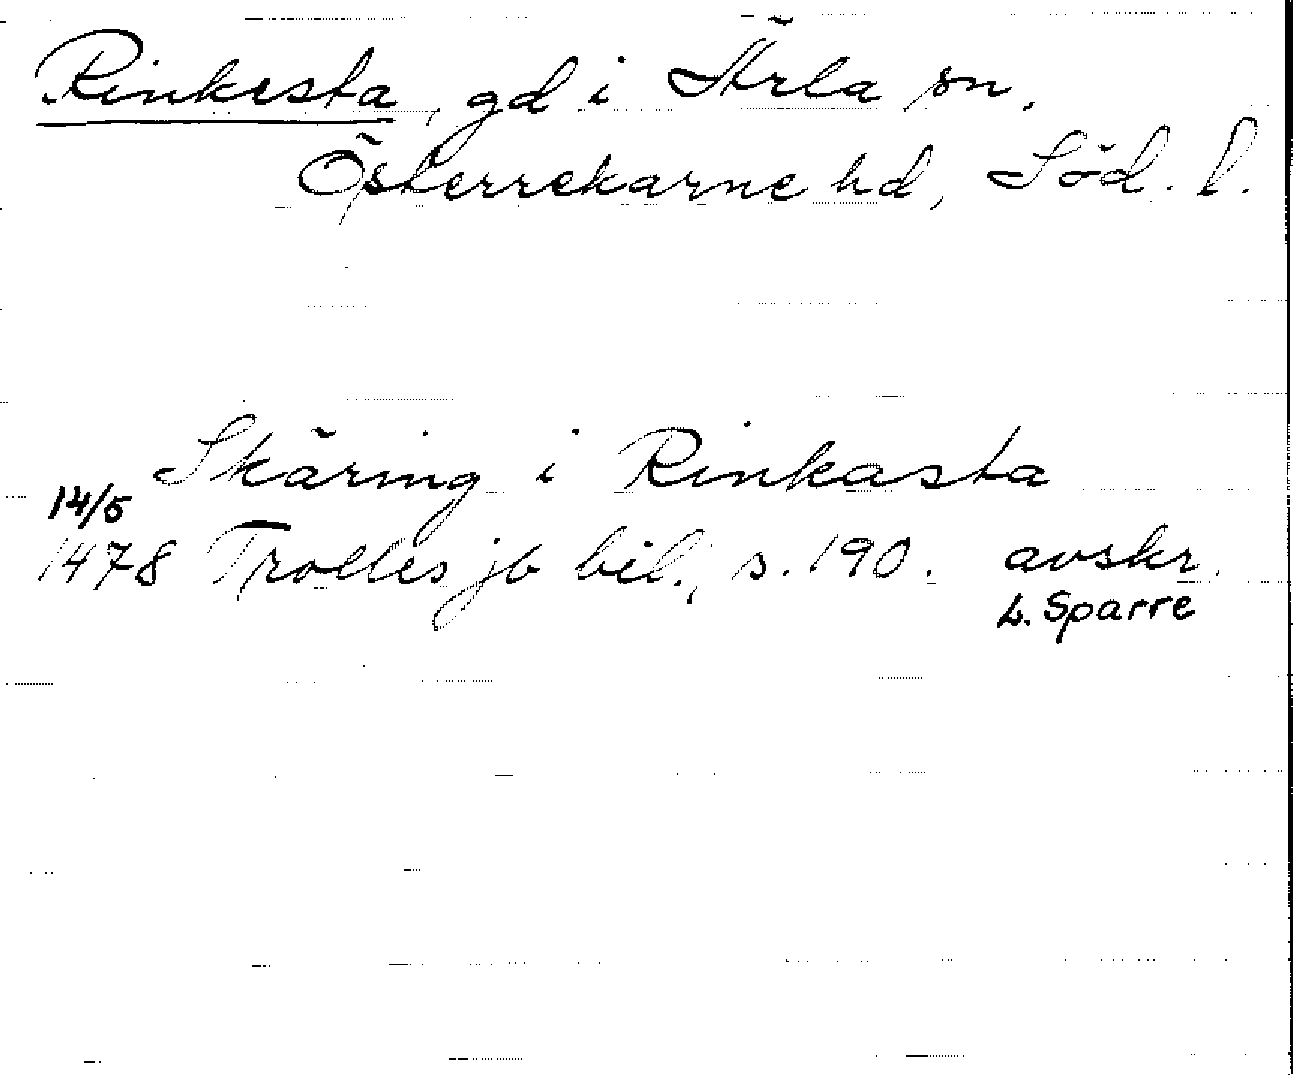 Rinkesta, gd i Ärla sn,
Österrekarne hd, Söd. l.
Skäring i Rinkasta
14/5
1478 Trolles jb bil., s. 190. avskr.
L. Sparre